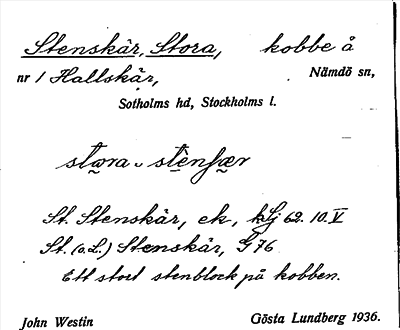 Stenskär, Stora, kobbe å
nr 1 Hallskär, Nämdö sn,
Sotholms hd, Stockholms l.
stora stenʃær
St. Stenskär, ek, 62. 10. V
St. (o. L.) Stenskär, G 76
Ett stort stenblock på kobben.
John Westin Gösta Lundberg 1936.